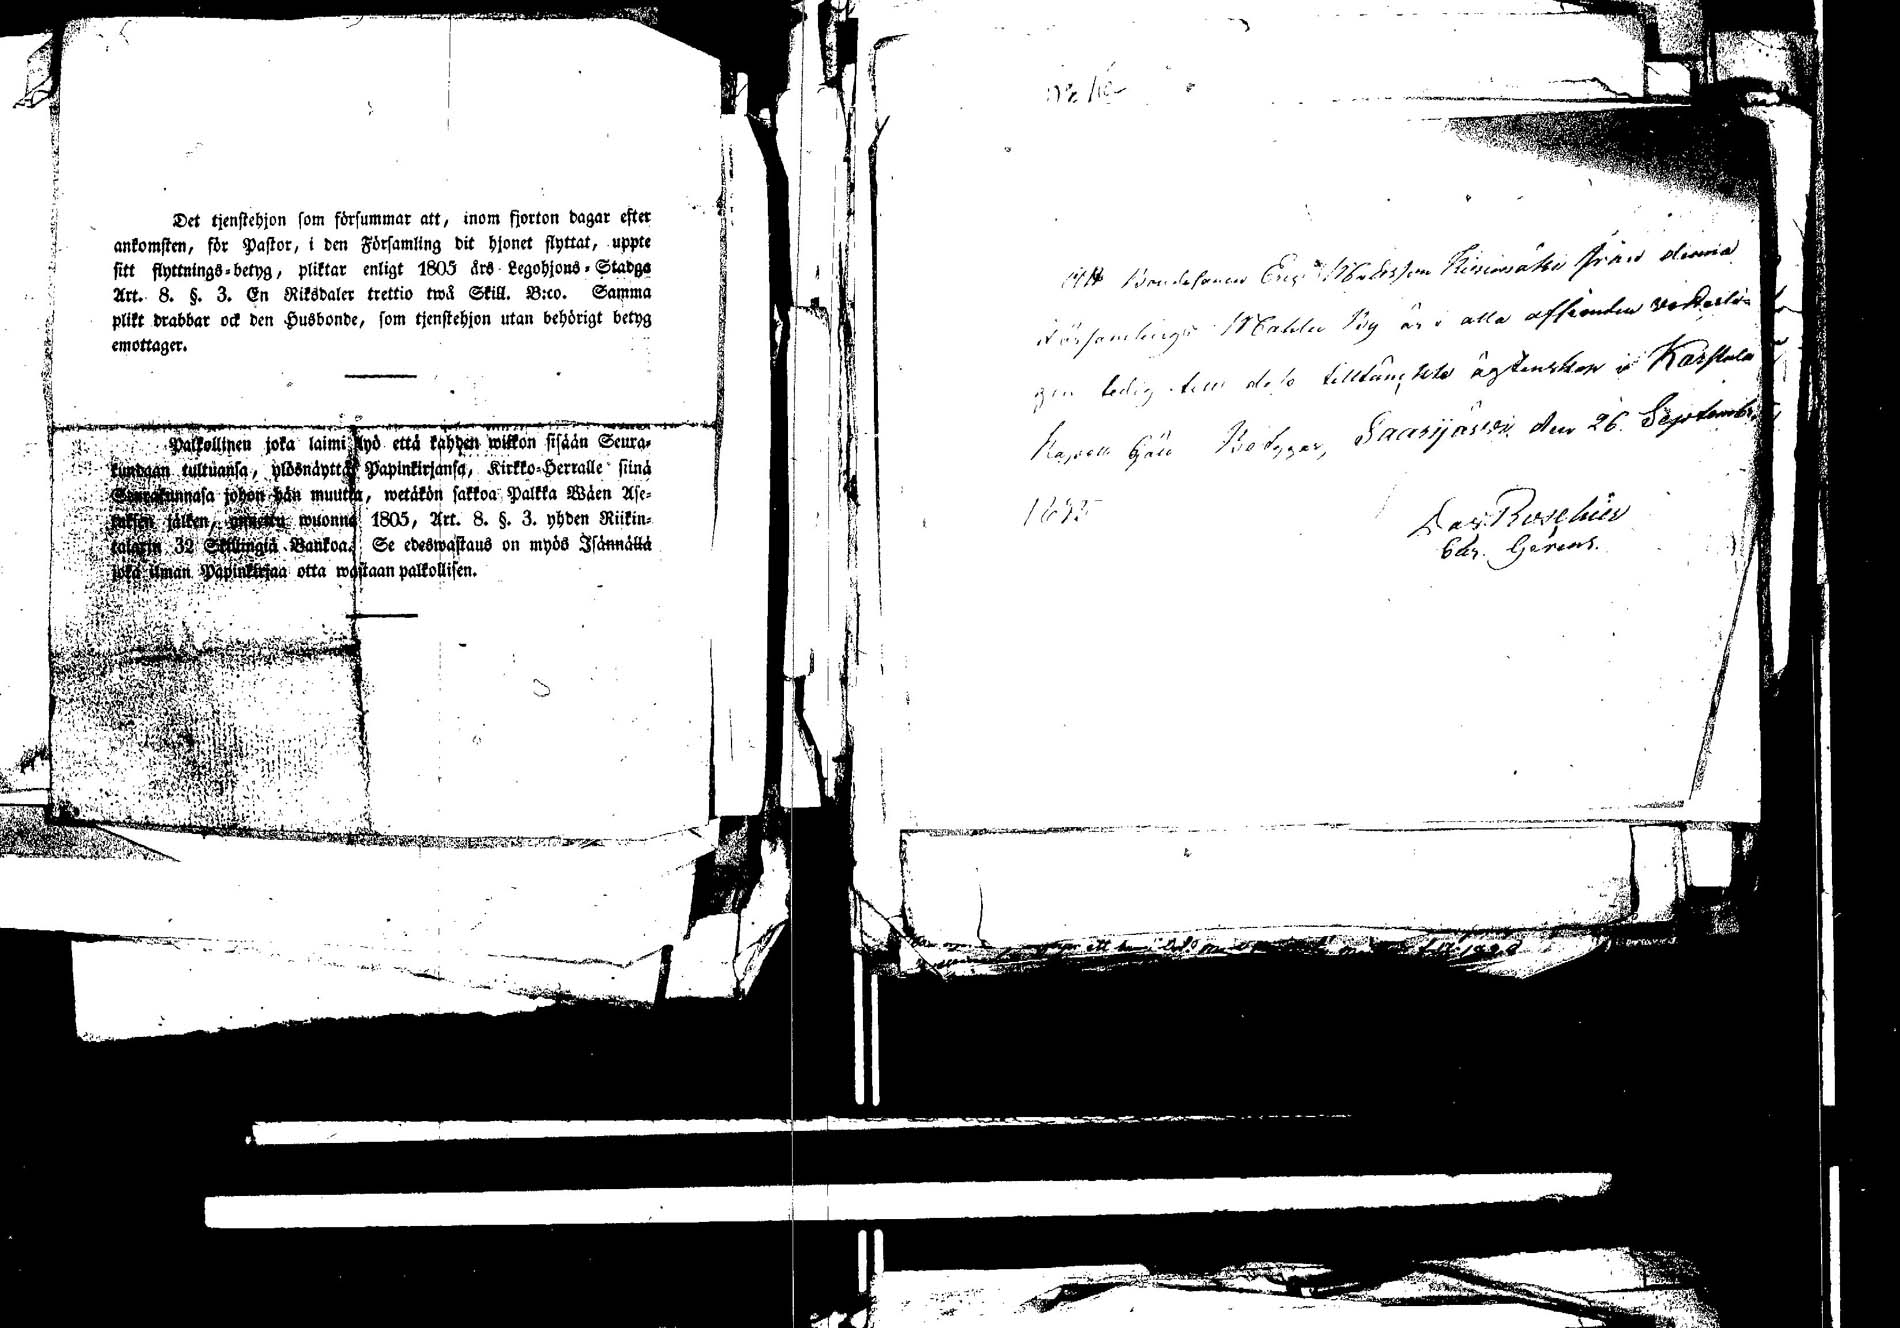 Det tjenstehjon som försummar att, inom fjorton dagar efter
ankomsten, för Pastor, i den Församling dit hjonet flyttat, uppte
sitt flyttnings-betyg, pliktar enligt 1805 års Legohjons-Stadga
Art. 8. §. 3. En Riksdaler trettio twå Skill. B:co. Samma
plikt drabbar ock den Husbonde, som tjenstehjon utan behörigt betyg
emottager.
Palkollinen joka laimi lyö että kahden wiikon sisään Seura-
kundaan tultuansa, ylösnäyttä Papinkirjansa, Kirkko-Herralle siinä
Seurakunnasa johon hän muutta, wetäkön sakkoa Palkka Wäen Ase-
tuksen jälken, annettu wuonna 1805, Art. 8. §. 3. yhden Riikin-
talarin 32 Skillingiä Bankoa. Se edeswastaus on myös Isännällä
joka ilman Papinkirjaa otta wastaan palkollisen.
Att Bondesonen Eric Mattsson från denna
Församlings Mahlu By är i alla afseenden
ledig till dess tilltänckte ägtenskap i Karstula
Kapell Gäld Betygar, Saarijärvi den 26 September
Roschier